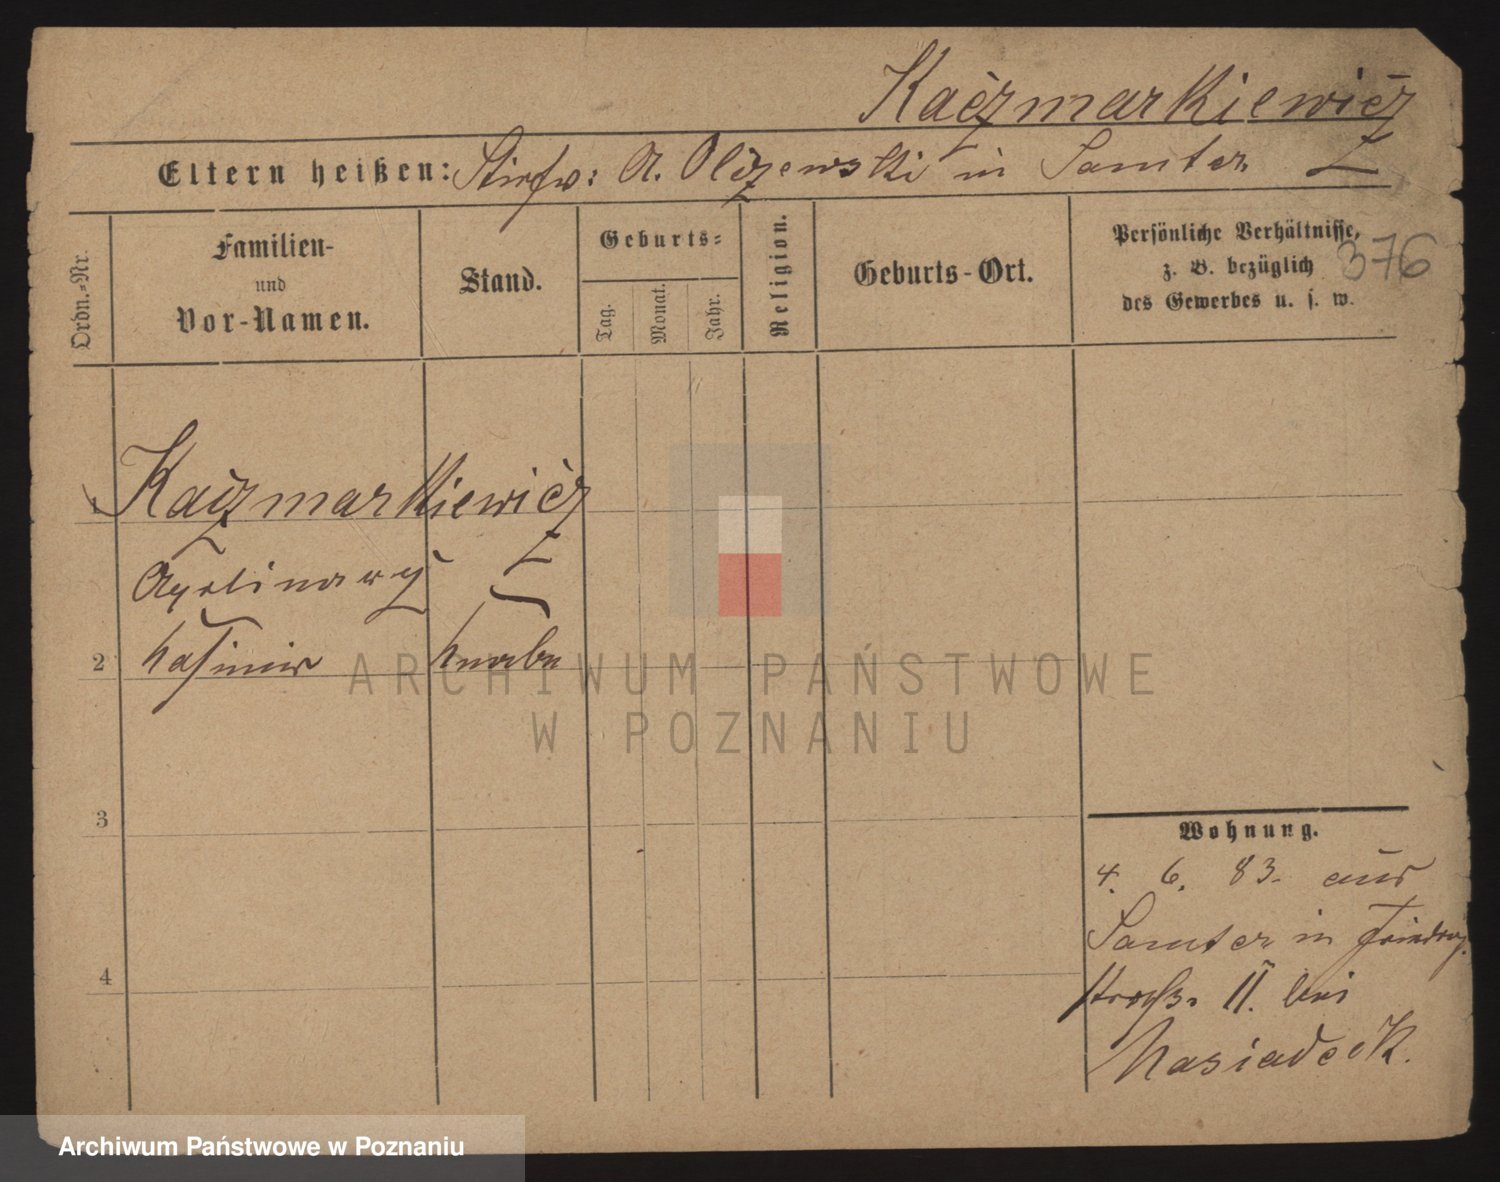 Kaczmarkiewicz
Eltern heißen: Stiefv: A. Olszewski in Samter
Ordn.-Nr.
Familien-
und
Vor-Namen.
Stand.
Geburts-
Tag.
Monat.
Jahr.
Religion.
Geburts-Ort.
Persönliche Verhältnisse,
z. B. bezüglich
des Gewerbes u. s. w.
376
1 Kaczmarkiewicz
Apolinary
2 Kasimir Knabe
3
4
Wohnung.
4. 6. 83. aus
Samter in Friedrich
straße 11. bei
Nasiadeek.
ARCHIWUM PAŃSTWOWE
W POZNANIU
Archiwum Państwowe w Poznaniu